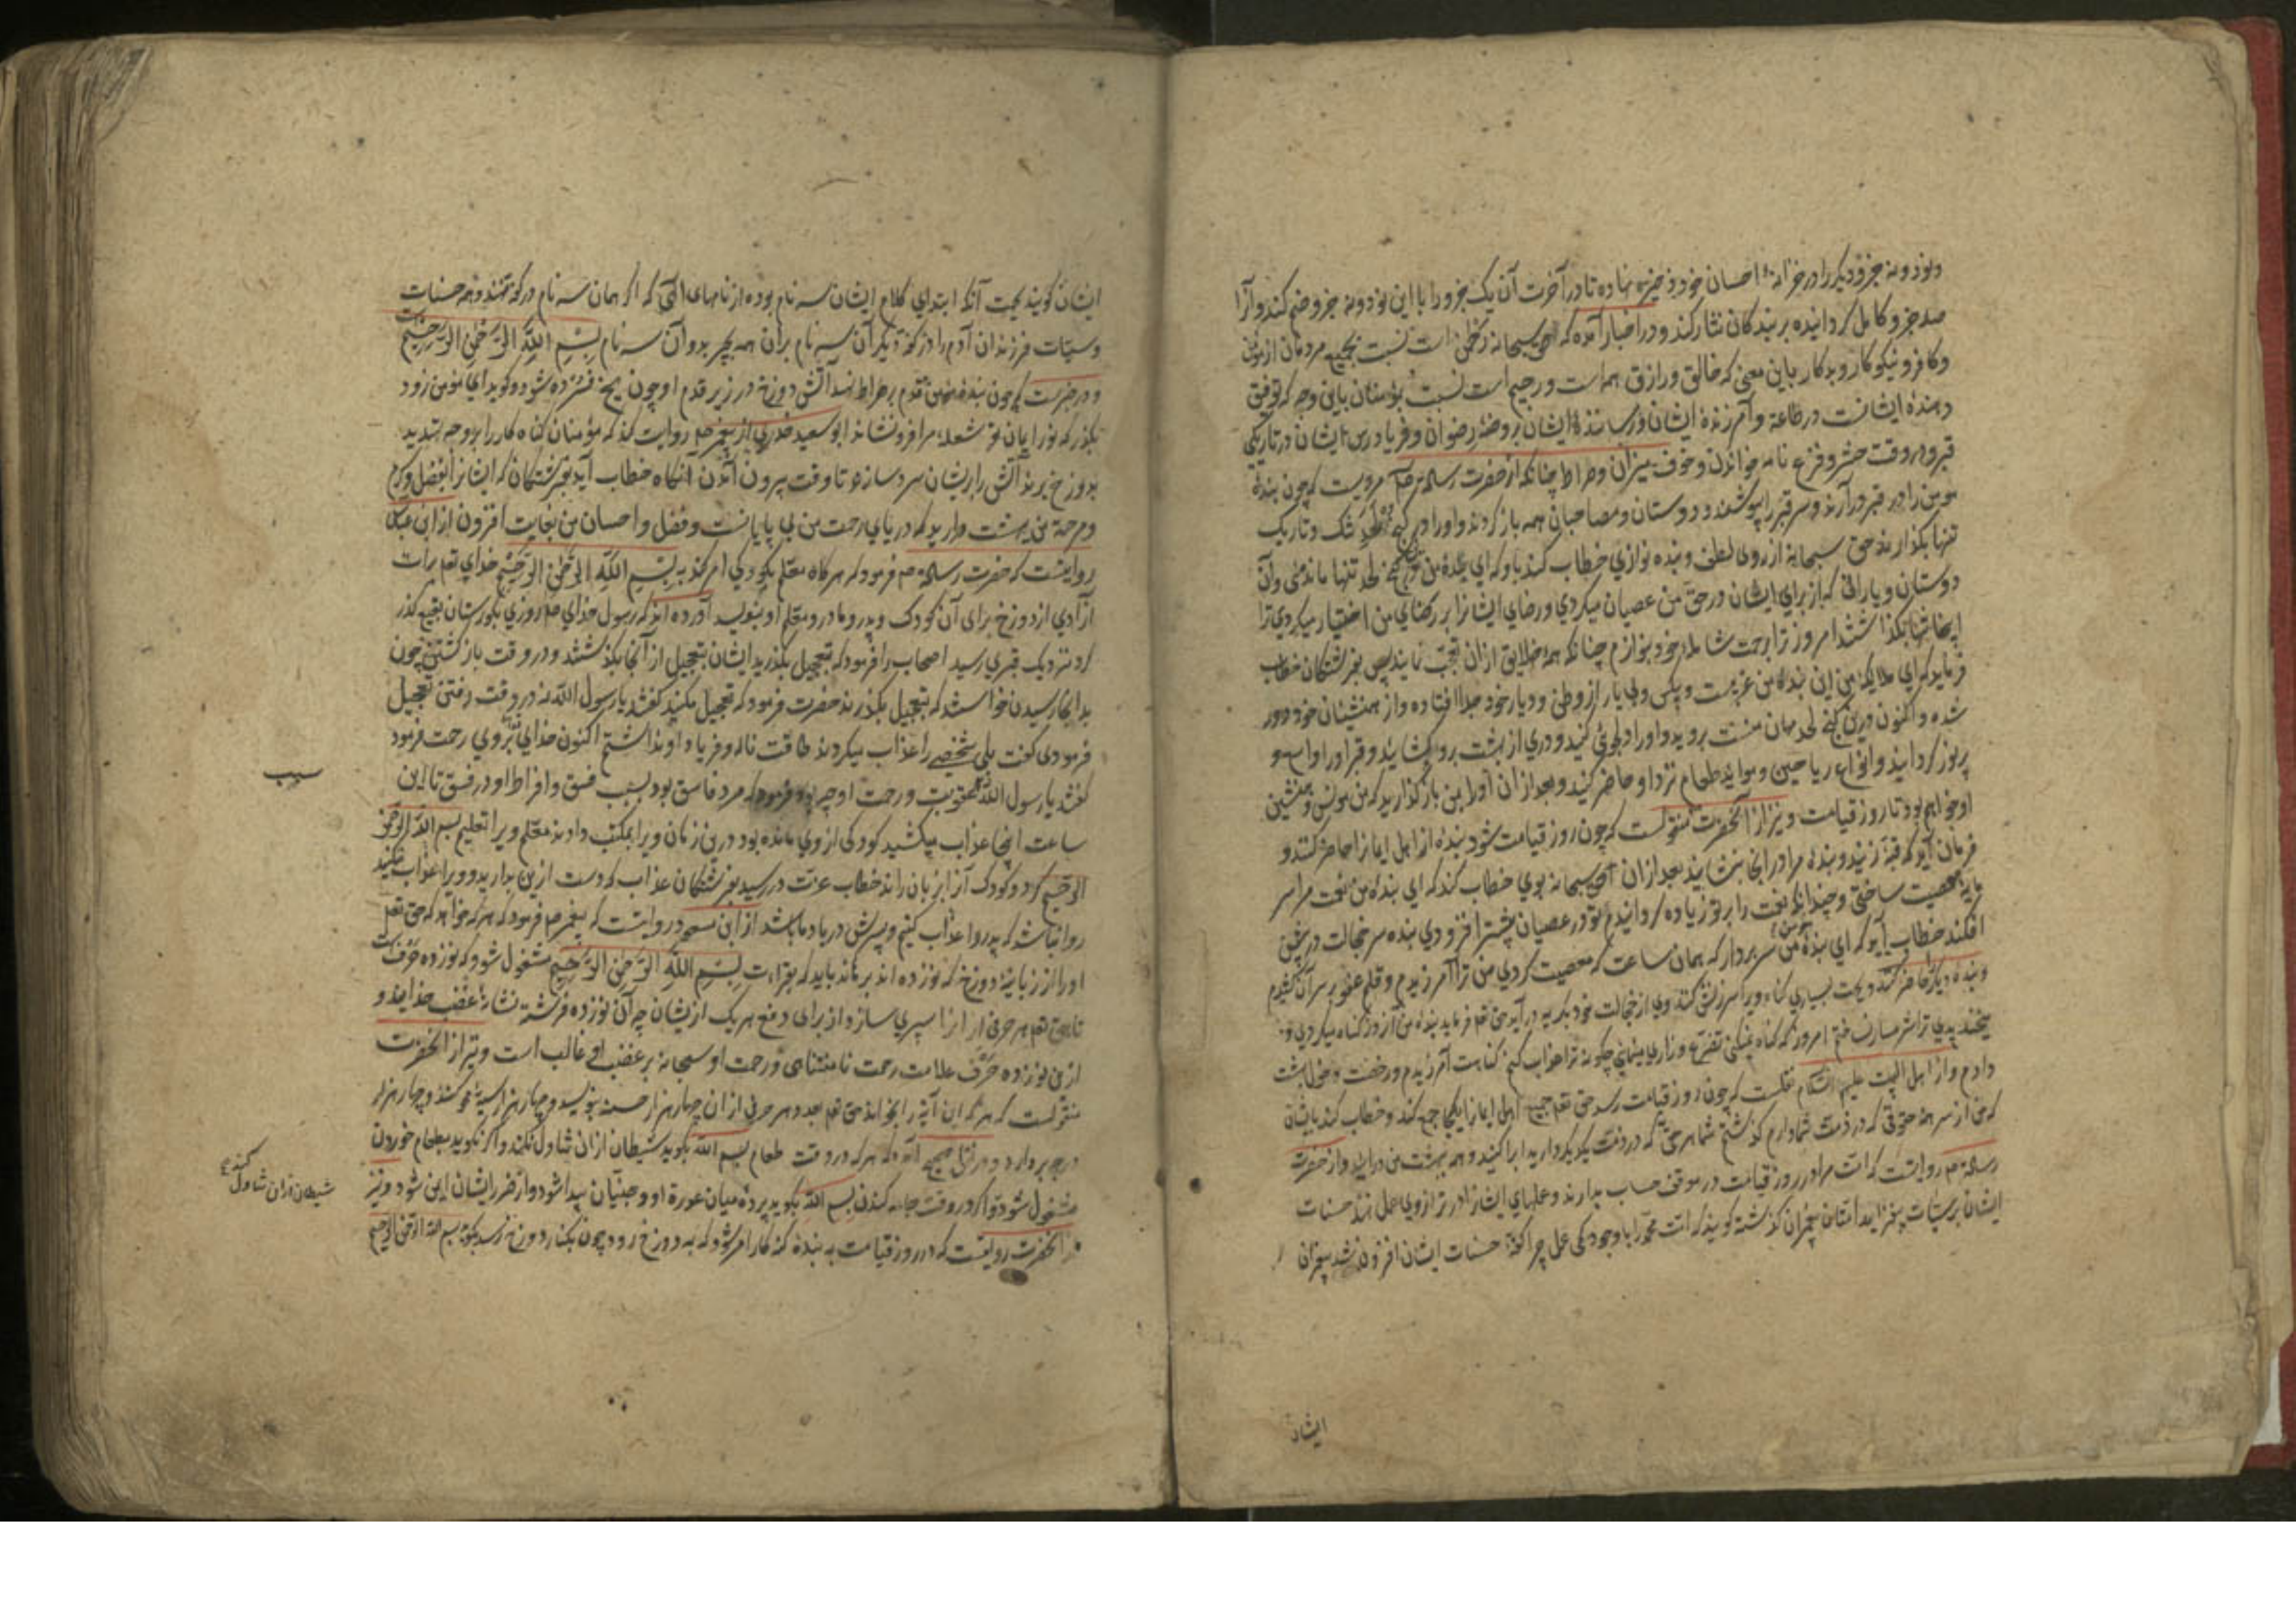 ونود و نه جزو دیگر را در خزانهٔ احسان خود ذخیره نهاده تا در آخرت آن یک جزو را با این نود و نه جزو ضم کند و آنرا
صد جزو کامل گردانیده بر بندگان نثار کند و در اخبار آمده که حق سبحانه رحمن است نسبت بجمیع مردمان از مومن
و کافر و نیکوکار و بدکار باین معنی که خالق و رازق همه است و رحیم است نسبت بمؤمنان باین وجه که توفیق
دهندهٔ ایشانست در طاعة و آمرزندهٔ ایشان و رسانندهٔ ایشان بروضهٔ رضوان و فریادرس ایشان در تاریکی
قبر و در وقت حشر و فزع نامه خواندن و خوف میزان و صراط چنانکه از حضرت رسالة ص مرویست که چون بندهٔ
مومن را در قبر درآرند و سر قبر را بپوشند و دوستان و مصاحبان همه بازگردند و او را در کنج لحد تنگ و تاریک
تنها بگذارند حق سبحانه از روی لطف و بنده نوازی خطاب کند باو که ای بندهٔ من در کنج لحد تنها ماندی و آن
دوستان و یارانی که از برای ایشان در حق من عصیان میکردی و رضای ایشانرا بر رضای من اختیار میکردی ترا
اینجا تنها بگذاشتند امروز ترا برحمت شاملهٔ خود بنوازم چنانکه همه خلایق از آن تعجب نمایند پس بفرشتگان خطاب
فرماید که ای ملایکهٔ من این بندهٔ من غریبست و بیکس و بی یار از وطن و دیار خود جدا افتاده و از همنشینان خود دور
شده و اکنون درین کنج لحد مهمان منست بروید و او را دلجوئی کنید و دری از بهشت برو بگشایید و قبر او را
پر نور گردانید و انواع ریاحین و مواید طعام نزد او حاضر کنید و بعد از آن او را بمن بازگذارید که من مونس و همنشین
او خواهم بود تا روز قیامت و نیز از آنحضرت منقولست که چون روز قیامت شود بندهٔ از اهل ایمانرا حاضر کنند و
فرمان آید که قبهٔ زنید و بندهٔ مرا در آنجا بنشانید بعد از آن حق سبحانه بوی خطاب کند که ای بندهٔ من نعمت مرا سر
مایهٔ معصیت ساختی و چندانکه نعمت را بر تو زیاده گردانیدم تو در عصیان بیشتر افزودی بنده سر خجالت در پیش
افکند خطاب آید که ای بندهٔ من سر بردار که همان ساعت که معصیت کردی من ترا آمرزیدم و قلم عفو بر سر آن کشیدم
و بندهٔ دیگر حاضر کنند و بجهت بسیاری گناه ویرا سرزنش کنند وی از خجالت خود بگریه درآید حق تعالی فرماید بندهٔ من آنروز که گناه میکردی و
میخندیدی ترا شرمسار نساختم امروز که گناه نمیکنی و تضرع و زاری مینمایی چگونه ترا عذاب کنم گناهت آمرزیدم و رخصت دخول بهشت
دادم و از اهل البیت علیهم السلام نقلست که چون روز قیامت رسد حق تعالی جمیع اهل ایمانرا یکجا جمع کند و خطاب کند بایشان
که من از سر همهٔ حقوقی که در ذمت شما دارم گذشتم شما هر حقی که در ذمت یکدیگر دارید ابرا کنید و همه ببهشت من درآیید و از حضرت
رسالة ص روایتست که امت مرا در روز قیامت در موقف حساب بدارند و عملهای ایشانرا در ترازوی عمل نهند حسنات
ایشان بر سیئات بیفزاید امتان پیغمبران گذشته گویند که امت محمد را با وجود کمی عمل چرا کفهٔ حسنات ایشان افزون شد پیغمبران
ایشان
ایشان گویند بجهت آنکه ابتدای کلام ایشان سه نام بوده از نامهای الهی که اگر همان سه نام در کفه نهند و همه حسنات
و سیئات فرزندان آدم را در کفهٔ دیگر آن سه نام بر آن همه بچربد و آن سه نام بسم الله الرحمن الرحیم است
و در خبرست که چون بندهٔ مومن قدم بر صراط نهد آتش دوزخ در زیر قدم او چون یخ فسرده شود و گوید ای مومن زود
بگذر که نور ایمان تو شعلهٔ مرا فرو نشاند ابو سعید خدری از پیغمبر ص روایت کند که مؤمنان گناه کار را بر وجه تهدید
بدوزخ برند آتش را بر ایشان سرد سازند تا وقت بیرون آمدن آنگاه خطاب آید بفرشتگان که ایشانرا بفضل و کرم
و مرحمة من ببهشت درآرید که دریای رحمت من بی پایانست و فضل و احسان من بغایت افزون از ابن عباس
روایتست که حضرت رسالة ص فرمود که هرگاه معلم بکودکی امر کند به بسم الله الرحمن الرحیم خدای تعالی برات
آزادی از دوزخ برای آن کودک و پدر و مادر و معلم او بنویسد آورده اند که رسول خدای ص روزی بگورستان بقیع گذر
کرد نزدیک قبری رسید اصحاب را فرمود که تعجیل بگذرید ایشان بتعجیل از آنجا بگذشتند و در وقت بازگشتن چون
بدانجا رسیدند خواستند که بتعجیل بگذرند حضرت فرمود که تعجیل مکنید گفتند یا رسول الله نه در وقت رفتن تعجیل
فرمودی گفت بلی شخصی را عذاب میکردند طاقت ناله و فریاد او نداشتم اکنون خدای تعالی بروی رحمت فرمود
گفتند یا رسول الله سبب عقوبت و رحمت او چه بود فرمود که مرد فاسق بود بسبب فسق و افراط او در فسق تا این
ساعت اینجا عذاب میکشید کودکی از وی مانده بود درین زمان ویرا بمکتب دادند معلم ویرا تعلیم بسم الله الرحمن
الرحیم کرد و کودک آنرا بر زبان راند خطاب عزت در رسید بفرشتگان عذاب که دست ازین بدارید و ویرا عذاب مکنید
روا نباشد که پدر را عذاب کنیم و پسرش در یاد ما باشد از ابن مسعود روایتست که پیغمبر ص فرمود که هر که خواهد که حق تعالی
او را از زبانیهٔ دوزخ که نوزده اند برهاند باید که بقراءت بسم الله الرحمن الرحیم مشغول شود که نوزده حرفست
تا حق تعالی هر حرفی از آنرا سپری سازد از برای دفع هر یک از ایشان چه آن نوزده فرشته نشانهٔ غضب خدایند و
این نوزده حرف علامت رحمت نامتناهی و رحمت او سبحانه بر غضب او غالب است و نیز از آنحضرت
منقولست که هر که این آیه را بخواند حق تعالی بعدد هر حرفی از آن چهار هزار حسنه بنویسد و چهار هزار سیئه محو کند و چهار هزار
درجه بردارد و در نقل صحیح آمده که هر که در وقت طعام بسم الله بگوید شیطان از آن تناول نکند و اگر نگوید بطعام خوردن
مشغول شود و اگر در وقت جامه کندن بسم الله بگوید پردهٔ میان عورة او و جنیان پیدا شود و از ضرر ایشان ایمن شود و نیز
از آنحضرت روایتست که در روز قیامت به بندهٔ گنه کار امر شود که به دوزخ رود چون بکنار دوزخ رسد بگوید بسم الله الرحمن الرحیم
سبب
شیطان از آن تناول کند